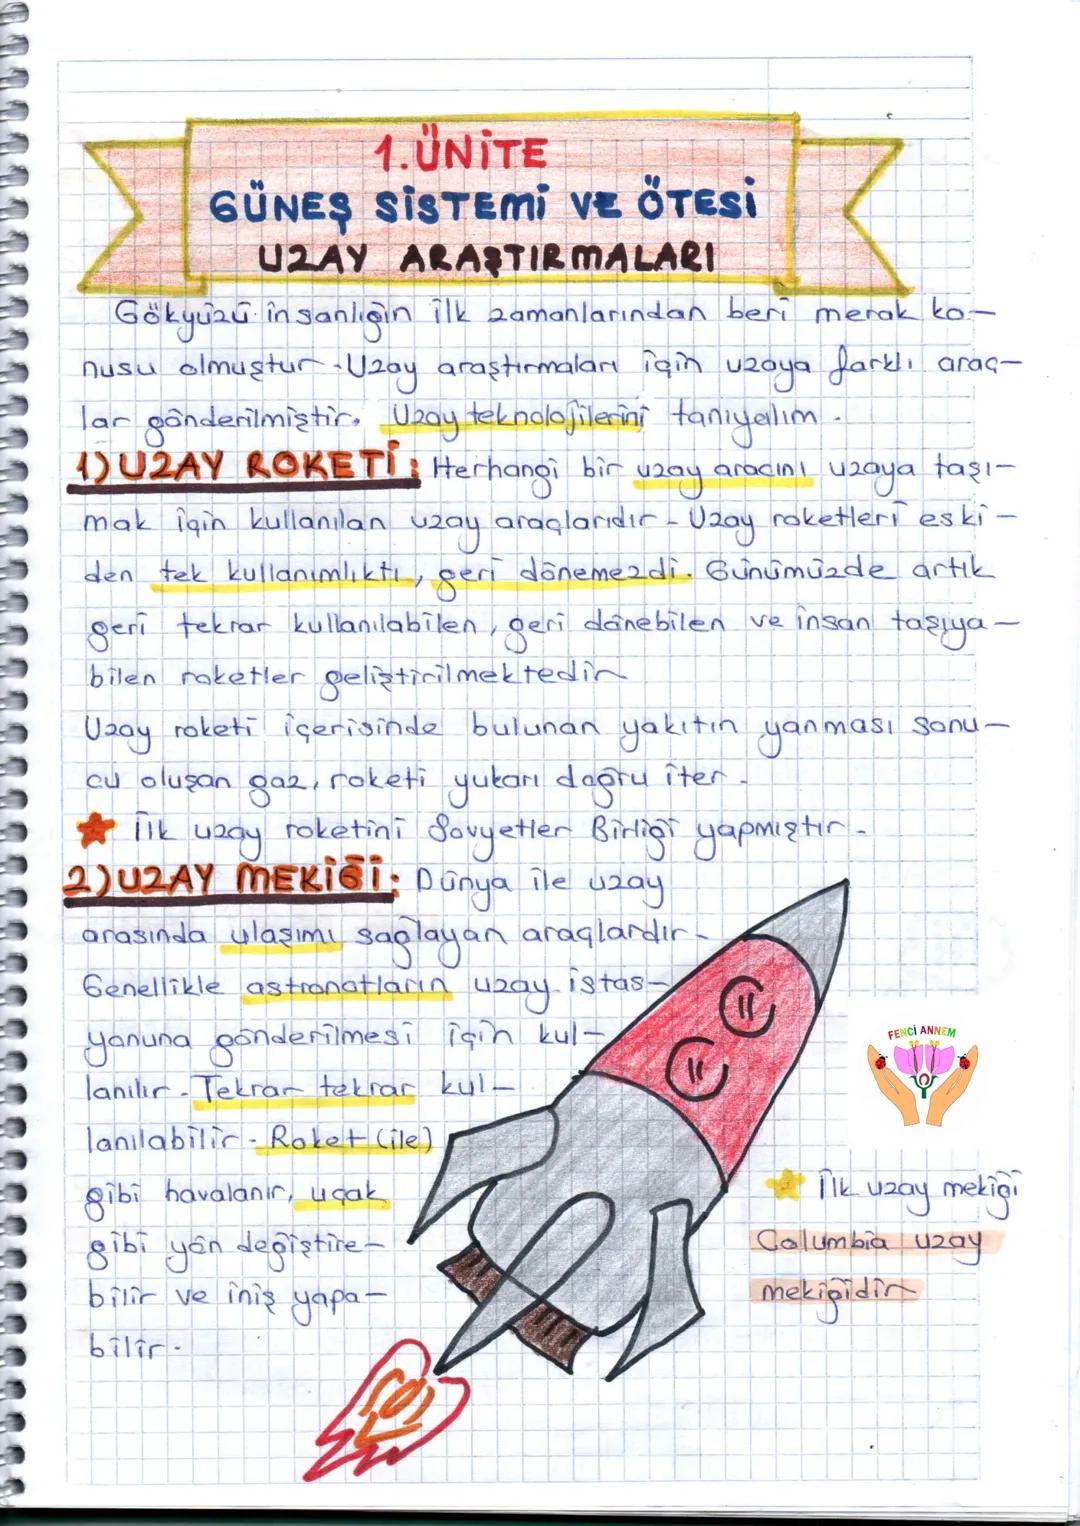 1.ÜNİTE
GÜNEŞ SİSTEMİ VE ÖTESİ
UZAY ARAŞTIRMALARI
Gökyüzü insanlığın ilk zamanlarından beri merak ko-
nusu olmuştur. Uzay araştırmaları için uzaya farklı araç-
lar gönderilmiştir. Uzay teknolojilerini tanıyalım.
1) UZAY ROKETİ: Herhangi bir uzay aracını uzaya taşı-
mak için kullanılan uzay araçlarıdır. Uzay roketleri eski-
den tek kullanımlıktı, geri dönemezdi. Günümüzde artık
geri tekrar kullanılabilen, geri dönebilen ve insan taşıya-
bilen roketler geliştirilmektedir
Uzay roketi içerisinde bulunan yakıtın yanması sonu-
cu oluşan gaz, roketi yukarı doğru iter.
İlk uzay roketini Sovyetler Birliği yapmıştır.
2) UZAY MEKİĞİ: Dünya ile uzay
arasında ulaşımı sağlayan araçlardır.
Genellikle astronotların uzay istas-
yonuna gönderilmesi için kul-
lanılır. Tekrar tekrar kul-
lanılabilir. Roket (ile)
gibi havalanır, uçak
gibi yön değiştire-
bilir ve iniş yapa-
bilir.
FENCİ ANNEM
İlk uzay mekiği
Columbia uzay
mekiğidir